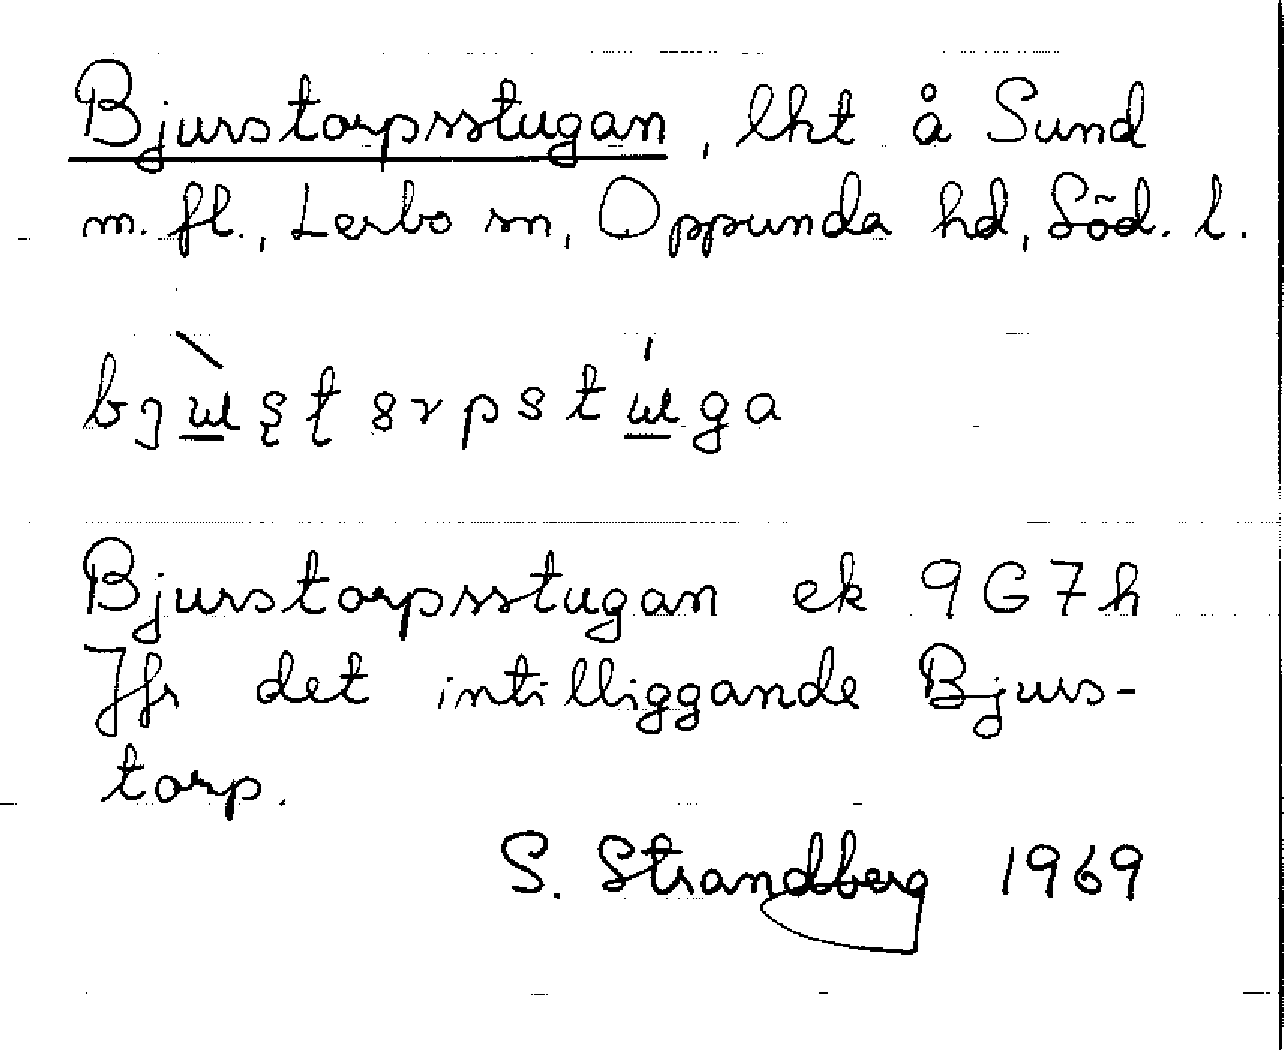 Bjurstorpsstugan, lht å Sund
m. fl., Lerbo sn, Oppunda hd, Söd. l.
Bjurstorpsstugan ek 9G7h
Jfr det intilliggande Bjurs-
torp.
S. Strandberg 1969